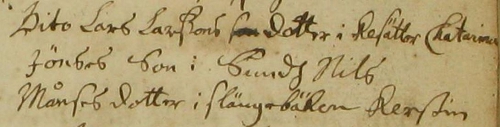 Dito Lars Larssons dotter i Resätter Chatarina
Jönses Son i Sund Nils
Månses dotter i slängebäken Kerstin